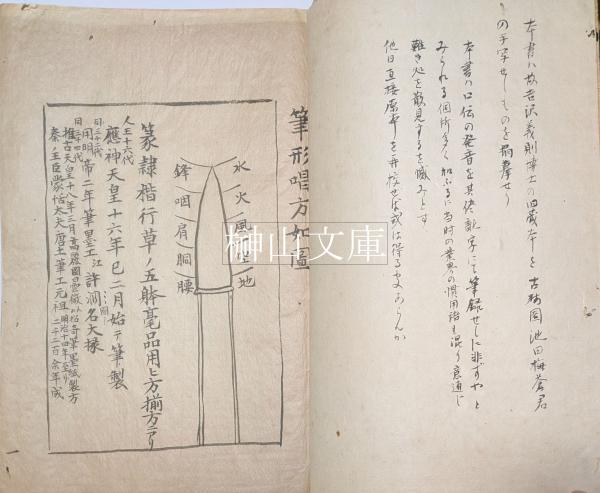 本書ハ故吉沢義則博士の旧蔵本を古梅園池田梅蒼君
の手写せしものを摹せり
本書ハ口伝の発音を其侭記字にて筆録せしに非ずやと
みられる個所多く加ふるに当時の業界の慣用語も混り意通じ
難き処を散見するを憾みとす
他日直接原本を再校せば或は得る処あらんか
筆形唱方如圖
水 火 風 空 地
鋒 咽 肩 胴 腰
篆隷楷行草ノ五躰毫品用ヒ方揃方アリ
人王十六代
應神天皇十六年巳二月始テ筆製
同三十代
用明帝二年筆墨工江諸洞名大椽
同三十四代
推古天皇十八年三月高麗國曇徴以佑奇筆墨紙製方
秦ノ王臣蒙恬太夫唐土筆工元祖明治十四年至リ二千二百余年成
榊山文庫